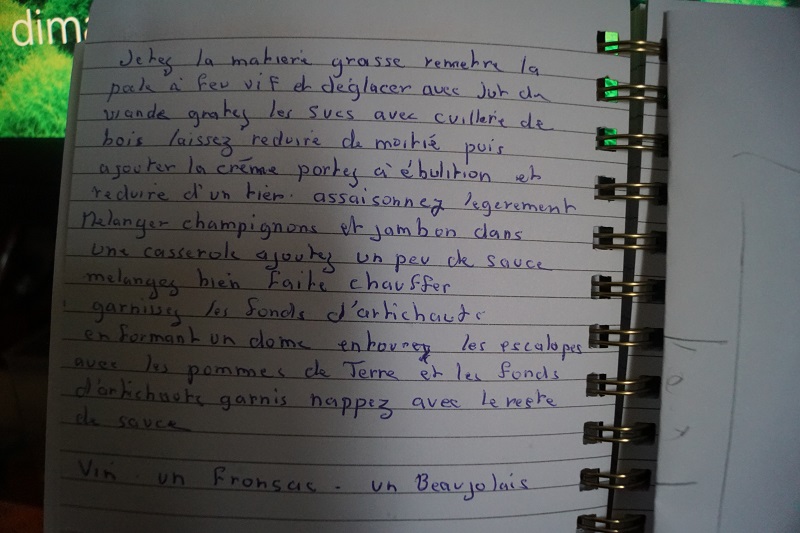 dima
Jetez la matiere grasse remetre la
poele à feu vif et déglacer avec jut du
viande gratez les sucs avec cuillerie de
bois laissez reduire de moitié puis
ajouter la crème portez à ébulition et
reduire d'un tier. assaisonnez legerement
Melanger champignons et jambon dans
une casserole ajoutez un peu de sauce
melangez bien faite chauffer
garnissez les fonds d'artichauts
en formant un dome entourez les escalopes
avec les pommes de Terre et les fonds
d'artichauts garnis nappez avec le reste
de sauce
Vin . un Fronsac - un Beaujolais